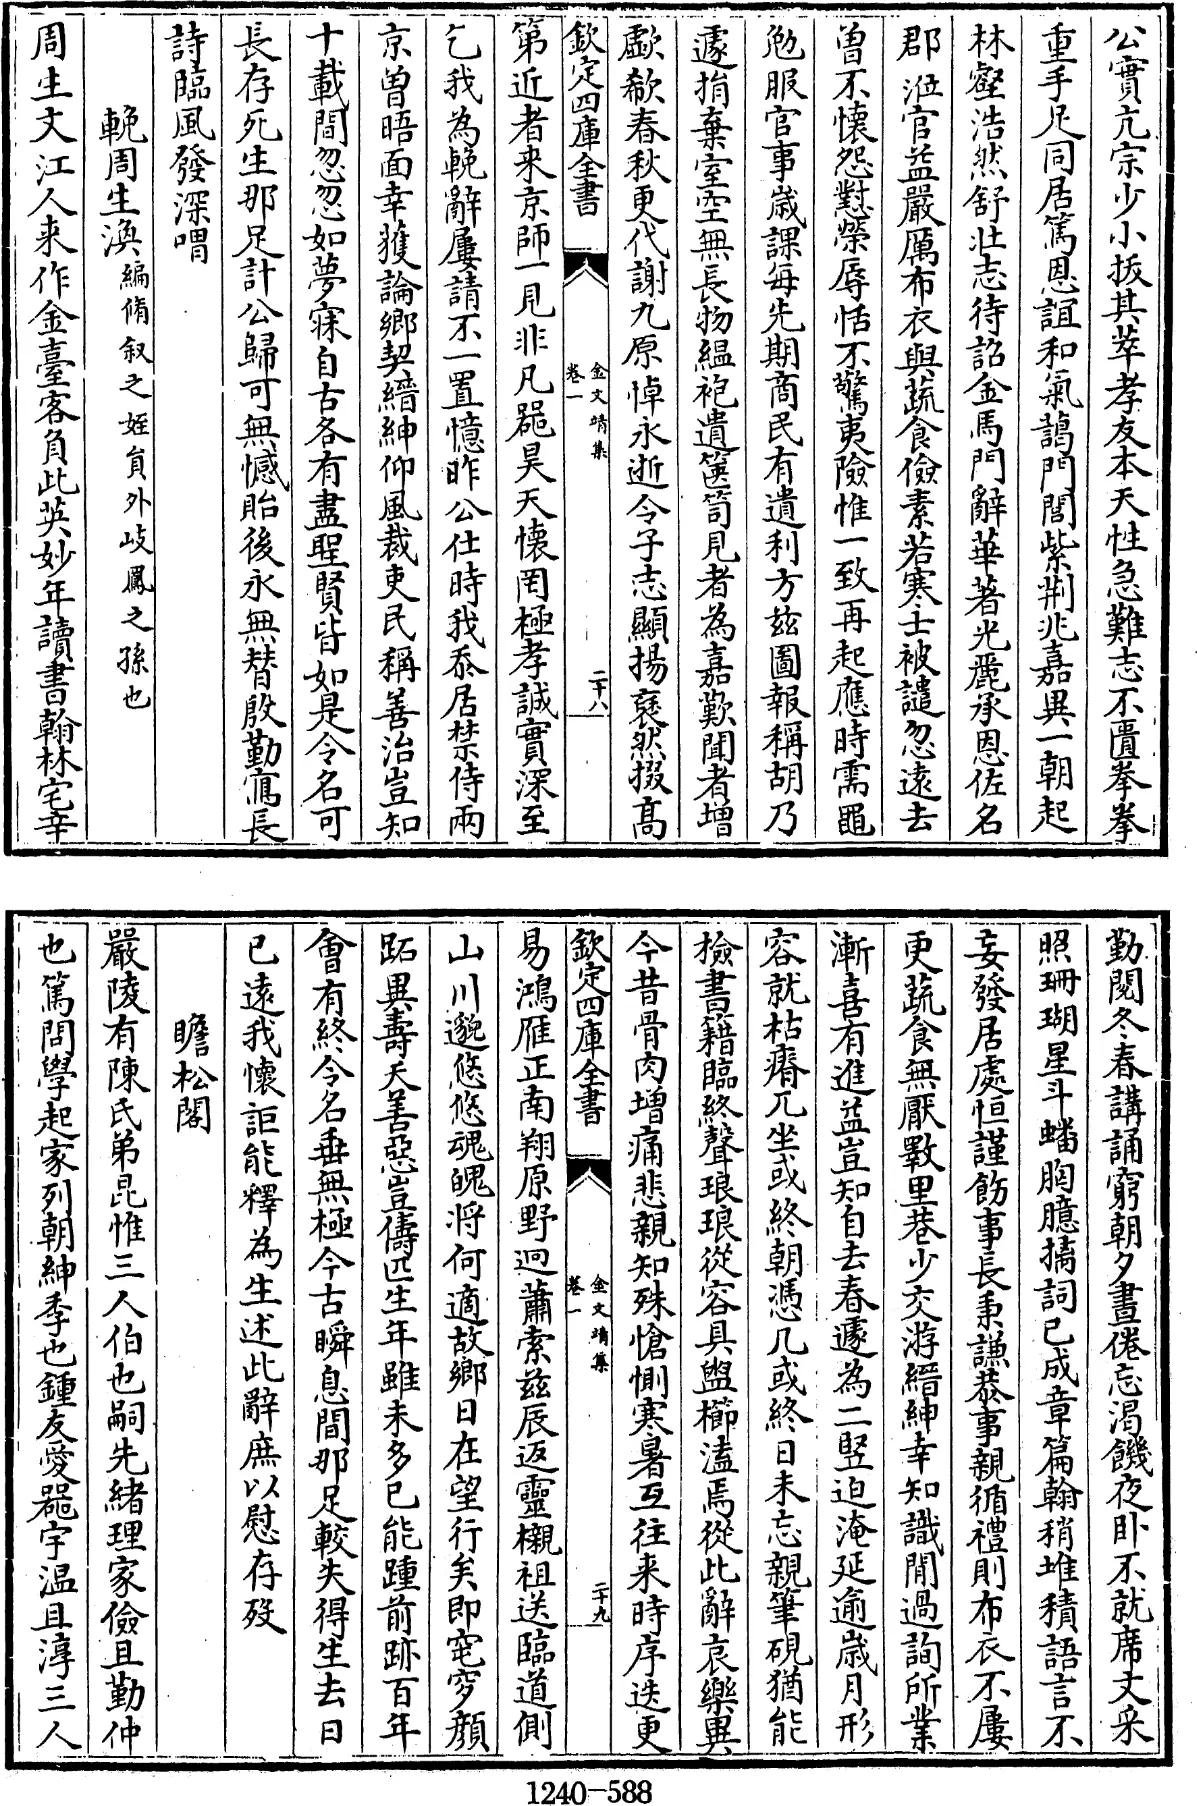 公實亢宗少小拔其萃孝友本天性急難志不匱拳拳
重手足同居篤恩誼和氣藹門閭紫荆兆嘉異一朝起
林壑浩然舒壯志待詔金馬門辭華著光麗承恩佐名
郡涖官益嚴厲布衣與蔬食儉素若寒士被譴忽遠去
曽不懐怨懟榮辱恬不驚夷險惟一致再起應時需黽
勉服官事歲課每先期商民有遺利方兹圖報稱胡乃
遽捐棄室空無長物緼袍遺篋笥見者為嘉歎聞者增
歔欷春秋更代謝九原悼永逝令子志顯揚裦然掇髙
欽定四庫全書
金文靖集
卷一
二十八
第近者来京師一見非凡器昊天懐罔極孝誠實深至
乞我為輓辭屢請不一置憶昨公仕時我忝居禁侍兩
京曽晤面幸獲論鄉契縉紳仰風裁吏民稱善治豈知
十載間忽忽如夢寐自古各有盡聖賢皆如是令名可
長存死生那足計公歸可無憾貽後永無替殷勤寫長
詩臨風發深喟
輓周生渙編脩叙之姪員外岐鳳之孫也
周生文江人来作金臺客負此英妙年讀書翰林宅辛
勤閱冬春講誦窮朝夕晝倦忘渴饑夜卧不就席文采
照珊瑚星斗蟠胸臆摛詞已成章篇翰稍堆積語言不
妄發居處恒謹飭事長秉謙恭事親循禮則布衣不屢
更蔬食無厭斁里巷少交游縉紳幸知識閒過詢所業
漸喜有進益豈知自去春遽為二竪迫淹延逾歲月形
容就枯瘠兀坐或終朝憑几或終日未忘親筆硯猶能
檢書籍臨終聲琅琅從容具盥櫛溘焉從此辭哀樂異
今昔骨肉増痛悲親知殊愴惻寒暑互往来時序迭更
欽定四庫全書
金文靖集
卷一
二十九
易鴻雁正南翔原野迥蕭索兹辰返靈櫬祖送臨道側
山川邈悠悠魂魄将何適故鄉日在望行矣即窀穸顔
跖異壽夭善惡豈儔匹生年雖未多已能踵前跡百年
會有終令名垂無極今古瞬息間那足較失得生去日
已遠我懐詎能釋為生述此辭庶以慰存殁
瞻松閣
嚴陵有陳氏弟昆惟三人伯也嗣先緒理家儉且勤仲
也篤問學起家列朝紳季也鍾友愛器宇温且淳三人
1240-588